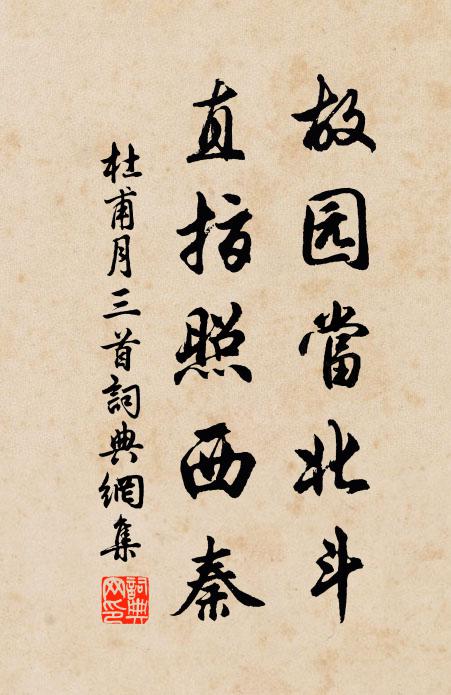 故园當北斗
直指照西秦
杜甫月三首詞典網集
詞典網印